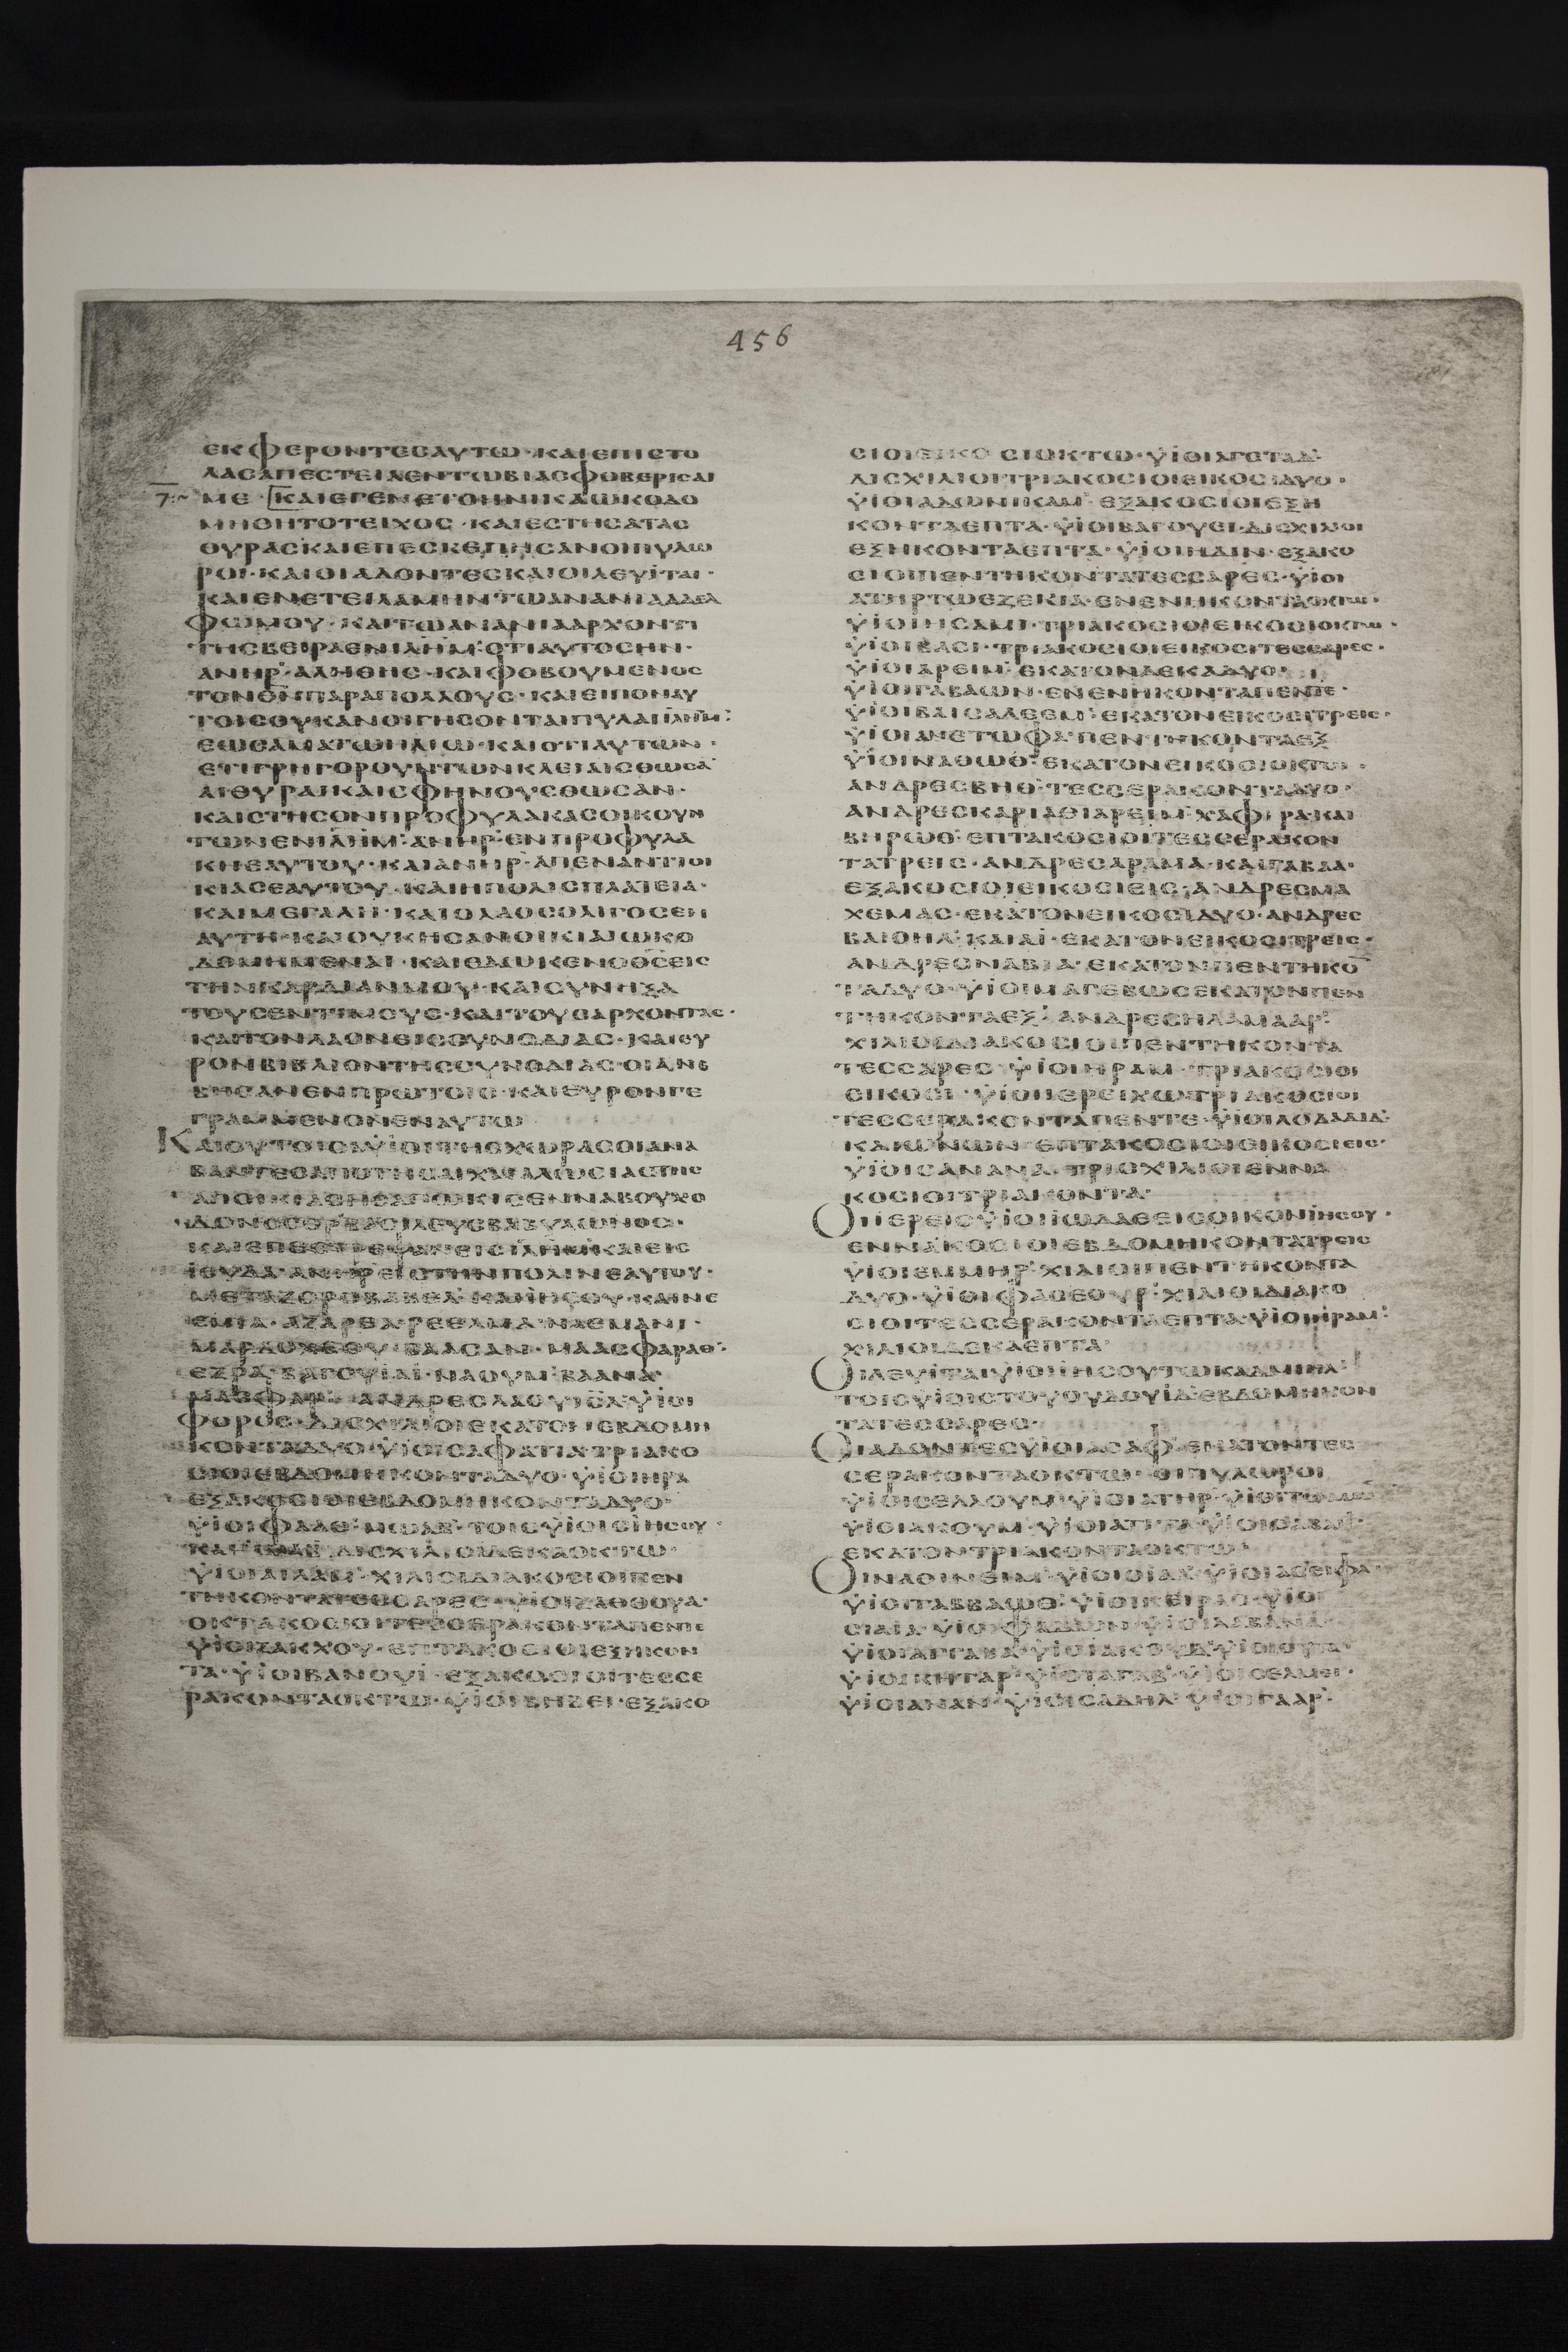 456
ΕΚΦΕΡΟΝΤΕΣΑΥΤΩ·ΚΑΙΕΠΙΣΤΟ
ΛΑΣΑΠΕΣΤΕΙΛΕΝΤΩΒΙΑΣΦΟΒΕΡΙΣΑΙ
7 ΜΕ·ΚΑΙΕΓΕΝΕΤΟΗΝΙΚΑΩΚΟΔΟ
ΜΗΘΗΤΟΤΕΙΧΟΣ·ΚΑΙΕΣΤΗΣΑΤΑΣ
ΘΥΡΑΣΚΑΙΕΠΕΣΚΕΠΗΣΑΝΟΙΠΥΛΩ
ΡΟΙ·ΚΑΙΟΙΑΔΟΝΤΕΣΚΑΙΟΙΛΕΥΪΤΑΙ·
ΚΑΙΕΝΕΤΕΙΛΑΜΗΝΤΩΑΝΑΝΙΑΑΔΕΛ
ΦΩΜΟΥ·ΚΑΙΤΩΑΝΑΝΙΑΑΡΧΟΝΤΙ
ΤΗΣΒΕΙΡΑΕΝΙΛΗΜ·ΟΤΙΑΥΤΟΣΗΝ·
ΑΝΗΡ·ΑΛΗΘΗΣ·ΚΑΙΦΟΒΟΥΜΕΝΟΣ
ΤΟΝΘΝΠΑΡΑΠΟΛΛΟΥΣ·ΚΑΙΕΙΠΟΝΑΥ
ΤΟΙΣΟΥΚΑΝΟΙΓΗΣΟΝΤΑΙΠΥΛΑΙΙΛΗΜ·
ΕΩΣΑΜΑΤΩΗΛΙΩ·ΚΑΙΟΤΙΑΥΤΩΝ·
ΕΤΙΓΡΗΓΟΡΟΥΝΤΩΝΚΛΕΙΑΙΣΘΩΣΑ
ΑΙΘΥΡΑΙΚΑΙΣΦΗΝΟΥΣΘΩΣΑΝ·
ΚΑΙΣΤΗΣΟΝΠΡΟΦΥΛΑΚΑΣΟΙΚΟΥΝ
ΤΩΝΕΝΙΛΗΜ·ΑΝΗΡ·ΕΝΠΡΟΦΥΛΑ
ΚΗΕΑΥΤΟΥ·ΚΑΙΑΝΗΡ·ΑΠΕΝΑΝΤΙΟΙ
ΚΙΑΣΕΑΥΤΟΥ·ΚΑΙΗΠΟΛΙΣΠΛΑΤΕΙΑ·
ΚΑΙΜΕΓΑΛΗ·ΚΑΙΟΛΑΟΣΟΛΙΓΟΣΕΝ
ΑΥΤΗ·ΚΑΙΟΥΚΗΣΑΝΟΙΚΙΑΙΩΚΟ
ΔΟΜΗΜΕΝΑΙ·ΚΑΙΕΔΩΚΕΝΟΘΣΕΙΣ
ΤΗΝΚΑΡΔΙΑΝΜΟΥ·ΚΑΙΣΥΝΗΞΑ
ΤΟΥΣΕΝΤΙΜΟΥΣ·ΚΑΙΤΟΥΣΑΡΧΟΝΤΑΣ·
ΚΑΙΤΟΝΛΑΟΝΕΙΣΣΥΝΟΔΙΑΣ·ΚΑΙΕΥ
ΡΟΝΒΙΒΛΙΟΝΤΗΣΣΥΝΟΔΙΑΣ·ΟΙΑΝΕ
ΒΗΣΑΝΕΝΠΡΩΤΟΙΣ·ΚΑΙΕΥΡΟΝΓΕ
ΓΡΑΜΜΕΝΟΝΕΝΑΥΤΩ
ΚΑΙΟΥΤΟΙΟΙΫΪΟΙΤΗΣΧΩΡΑΣΟΙΑΝΑ
ΒΑΝΤΕΣΑΠΟΤΗΣΑΙΧΜΑΛΩΣΙΑΣΤΗΣ
ΑΠΟΙΚΙΑΣΗΣΑΠΩΚΙΣΕΝΝΑΒΟΥΧΟ
ΔΟΝΟΣΟΡ·ΒΑΣΙΛΕΥΣΒΑΒΥΛΩΝΟΣ·
ΚΑΙΕΠΕΣΤΡΕΨΑΝΕΙΣΙΛΗΜ·ΚΑΙΕΙΣ
ΪΟΥΔΑ·ΑΝΗΡΕΙΣΤΗΝΠΟΛΙΝΕΑΥΤΟΥ·
ΜΕΤΑΖΟΡΟΒΑΒΕΛ·ΚΑΙΪΗΣΟΥ·ΚΑΙΝΕ
ΕΜΙΑ·ΑΖΑΡΕΑ·ΡΕΕΛΜΑ·ΝΑΕΜΑΝΙ·
ΜΑΡΔΟΧΕΟΥ·ΒΑΛΣΑΝ·ΜΑΑΣΦΑΡΑΘ·
ΕΖΡΑ·ΒΑΓΟΥΪΑΪ·ΝΑΟΥΜ·ΒΑΑΝΑ
ΑΝΔΡΕΣΛΑΟΥΪΣΛ·ΫΪΟΙ
ΦΟΡΟΣ·ΔΙΣΧΙΛΙΟΙΕΚΑΤΟΝΕΒΔΟΜΗ
ΚΟΝΤΑΔΥΟ·ΫΪΟΙΣΑΦΑΤΙΑΤΡΙΑΚΟ
ΣΙΟΙΕΒΔΟΜΗΚΟΝΤΑΔΥΟ·ΫΪΟΙΗΡΑ
ΕΞΑΚΟΣΙΟΙΕΒΔΟΜΗΚΟΝΤΑΔΥΟ·
ΫΪΟΙΦΑΑΘ·ΜΩΑΒ·ΤΟΙΣΫΪΟΙΣΪΗΣΟΥ·
ΚΑΙΪΩΑΒ·ΔΙΣΧΙΛΙΟΙΔΕΚΑΟΚΤΩ·
ΫΪΟΙΑΙΛΑΜ·ΧΙΛΙΟΙΔΙΑΚΟΣΙΟΙΠΕΝ
ΤΗΚΟΝΤΑΤΕΣΣΑΡΕΣ·ΫΪΟΙΖΑΘΘΟΥΑ·
ΟΚΤΑΚΟΣΙΟΙΤΕΣΣΕΡΑΚΟΝΤΑΠΕΝΤΕ
ΫΪΟΙΖΑΚΧΟΥ·ΕΠΤΑΚΟΣΙΟΙΕΞΗΚΟΝ
ΤΑ·ΫΪΟΙΒΑΝΟΥΪ·ΕΞΑΚΟΣΙΟΙΤΕΣΣΕ
ΡΑΚΟΝΤΑΟΚΤΩ·ΫΪΟΙΒΗΒΕΙ·ΕΞΑΚΟ
ΣΙΟΙΕΙΚΟΣΙΟΚΤΩ·ΫΪΟΙΑΓΕΤΑΔ·
ΔΙΣΧΙΛΙΟΙΤΡΙΑΚΟΣΙΟΙΕΙΚΟΣΙΔΥΟ·
ΫΪΟΙΑΔΩΝΙΚΑΜ·ΕΞΑΚΟΣΙΟΙΕΞΗ
ΚΟΝΤΑΕΠΤΑ·ΫΪΟΙΒΑΓΟΥΕΙ·ΔΙΣΧΙΛΙΟΙ
ΕΞΗΚΟΝΤΑΕΠΤΑ·ΫΪΟΙΗΔΙΝ·ΕΞΑΚΟ
ΣΙΟΙΠΕΝΤΗΚΟΝΤΑΤΕΣΣΑΡΕΣ·ΫΪΟΙ
ΑΤΗΡΤΩΕΖΕΚΙΑ·ΕΝΕΝΗΚΟΝΤΑΟΚΤΩ·
ΫΪΟΙΗΣΑΜΙ·ΤΡΙΑΚΟΣΙΟΙΕΙΚΟΣΙΟΚΤΩ·
ΫΪΟΙΒΑΣΙ·ΤΡΙΑΚΟΣΙΟΙΕΙΚΟΣΙΤΕΣΣΑΡΕΣ·
ΫΪΟΙΑΡΕΙΜ·ΕΚΑΤΟΝΔΕΚΑΔΥΟ·
ΫΪΟΙΓΑΒΑΩΝ·ΕΝΕΝΗΚΟΝΤΑΠΕΝΤΕ·
ΫΪΟΙΒΑΙΣΑΛΕΕΜ·ΕΚΑΤΟΝΕΙΚΟΣΙΤΡΕΙΣ·
ΫΪΟΙΑΝΕΤΩΦΑ·ΠΕΝΤΗΚΟΝΤΑΕΞ
ΫΪΟΙΝΑΘΩΘ·ΕΚΑΤΟΝΕΙΚΟΣΙΟΚΤΩ·
ΑΝΔΡΕΣΒΗΘ·ΤΕΣΣΕΡΑΚΟΝΤΑΔΥΟ·
ΑΝΔΡΕΣΚΑΡΙΑΘΙΑΡΕΙΜ·ΧΑΦΙΡΑ·ΚΑΙ
ΒΗΡΩΘ·ΕΠΤΑΚΟΣΙΟΙΤΕΣΣΕΡΑΚΟΝ
ΤΑΤΡΕΙΣ·ΑΝΔΡΕΣΑΡΑΜΑ·ΚΑΙΓΑΒΑΑ·
ΕΞΑΚΟΣΙΟΙΕΙΚΟΣΙΕΙΣ·ΑΝΔΡΕΣΜΑ
ΧΕΜΑΣ·ΕΚΑΤΟΝΕΙΚΟΣΙΔΥΟ·ΑΝΔΡΕΣ
ΒΑΙΘΗΛ·ΚΑΙΑΪ·ΕΚΑΤΟΝΕΙΚΟΣΙΤΡΕΙΣ·
ΑΝΔΡΕΣΝΑΒΙΑ·ΕΚΑΤΟΝΠΕΝΤΗΚΟ
ΤΑΔΥΟ·ΫΪΟΙΜΑΓΕΒΩΣΕΚΑΤΟΝΠΕΝ
ΤΗΚΟΝΤΑΕΞ·ΑΝΔΡΕΣΗΛΑΜΑΑΡ·
ΧΙΛΙΟΙΔΙΑΚΟΣΙΟΙΠΕΝΤΗΚΟΝΤΑ
ΤΕΣΣΑΡΕΣ·ΫΪΟΙΗΡΑΜ·ΤΡΙΑΚΟΣΙΟΙ
ΕΙΚΟΣΙ·ΫΪΟΙΪΕΡΕΙΧΩ·ΤΡΙΑΚΟΣΙΟΙ
ΤΕΣΣΕΡΑΚΟΝΤΑΠΕΝΤΕ·ΫΪΟΙΛΟΔΑΔΙΔ·
ΚΑΙΩΝΩΝ·ΕΠΤΑΚΟΣΙΟΙΕΙΚΟΣΙΕΙΣ·
ΫΪΟΙΣΑΝΑΝΑ·ΤΡΙΣΧΙΛΙΟΙΕΝΝΑ
ΚΟΣΙΟΙΤΡΙΑΚΟΝΤΑ·
ΟΙΪΕΡΕΙΣΫΪΟΙΪΩΔΑΕΕΙΣΟΙΚΟΝΪΗΣΟΥ·
ΕΝΝΑΚΟΣΙΟΙΕΒΔΟΜΗΚΟΝΤΑΤΡΕΙΣ
ΫΪΟΙΕΜΜΗΡ·ΧΙΛΙΟΙΠΕΝΤΗΚΟΝΤΑ
ΔΥΟ·ΫΪΟΙΦΑΣΕΟΥΡ·ΧΙΛΙΟΙΔΙΑΚΟ
ΣΙΟΙΤΕΣΣΕΡΑΚΟΝΤΑΕΠΤΑ·ΫΪΟΙΗΡΑΜ·
ΧΙΛΙΟΙΔΕΚΑΕΠΤΑ·
ΟΙΛΕΥΪΤΑΙΫΪΟΙΪΗΣΟΥΤΩΚΑΔΜΙΗΛ·
ΤΟΙΣΫΪΟΙΣΤΟΥΟΥΔΟΥΪΑ·ΕΒΔΟΜΗΚΟΝ
ΤΑΤΕΣΣΑΡΕΣ·
ΟΙΑΔΟΝΤΕΣΫΪΟΙΑΣΑΦ·ΕΚΑΤΟΝΤΕΣ
ΣΕΡΑΚΟΝΤΑΟΚΤΩ·ΟΙΠΥΛΩΡΟΙ
ΫΪΟΙΣΕΛΛΟΥΜ·ΫΪΟΙΑΤΗΡ·
ΫΪΟΙΑΚΟΥΜ·ΫΪΟΙΑΤΙΤΑ·ΫΪΟΙΣΑΒΑΪ·
ΕΚΑΤΟΝΤΡΙΑΚΟΝΤΑΟΚΤΩ·
ΟΙΝΑΘΙΝΕΙΜ·ΫΪΟΙΟΪΑΑ·ΫΪΟΙΑΣΕΙΦΑ·
ΫΪΟΙΤΑΒΒΑΩΘ·ΫΪΟΙΚΕΙΡΑΣ·ΫΪΟΙ
ΣΙΑΙΑ·ΫΪΟΙΦΑΔΩΝ·ΫΪΟΙΛΑΒΑΝΑ·
ΫΪΟΙΑΓΓΑΒΑ·ΫΪΟΙΑΚΟΥΔ·ΫΪΟΙΟΥΤΑ·
ΫΪΟΙΚΗΤΑΡ·ΫΪΟΙΑΓΑΒ·ΫΪΟΙΣΕΛΜΕΙ·
ΫΪΟΙΑΝΑΝ·ΫΪΟΙΣΑΔΗΛ·ΫΪΟΙΓΑΑΡ·